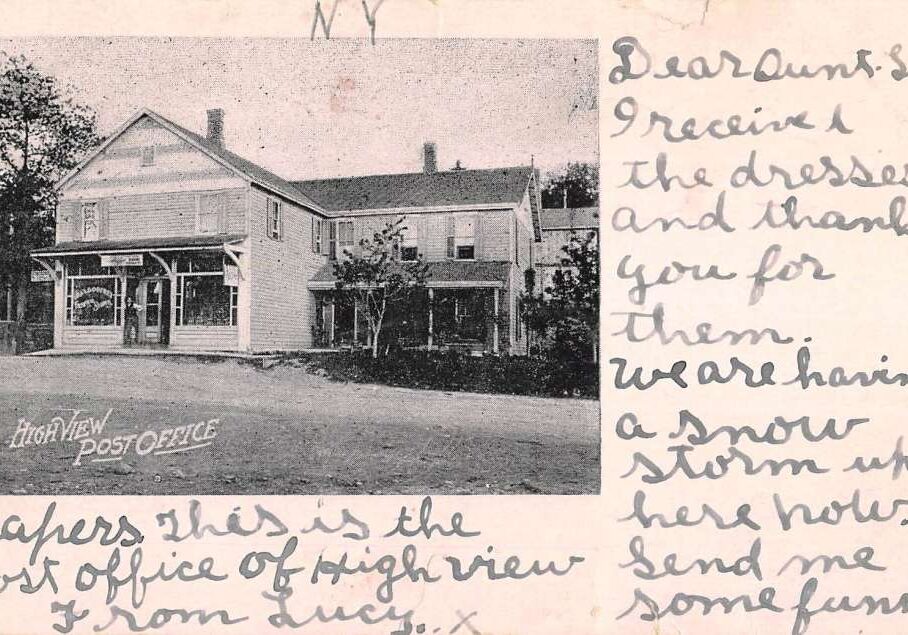 N Y
Dear Aunt. S
I received
the dresses
and thank
you for
them.
We are havin
a snow
storm up
here now.
Send me
some funn
apers. This is the
ost office of High view
From Lucy.. x
HIGH VIEW
POST OFFICE